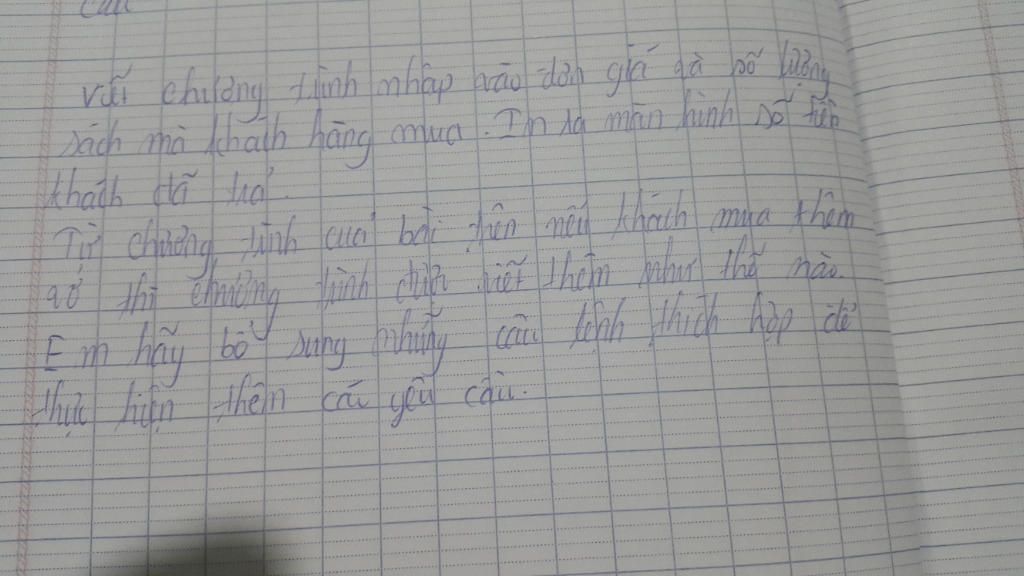 Viết chương trình nhập vào đơn giá và số lượng
sách mà khách hàng mua. In ra màn hình số tiền
khách đã trả.
Từ chương trình của bài trên nếu khách mua thêm
thì chương trình được viết thêm như thế nào.
Em hãy bổ sung những câu lệnh thích hợp để
thực hiện thêm các yêu cầu.